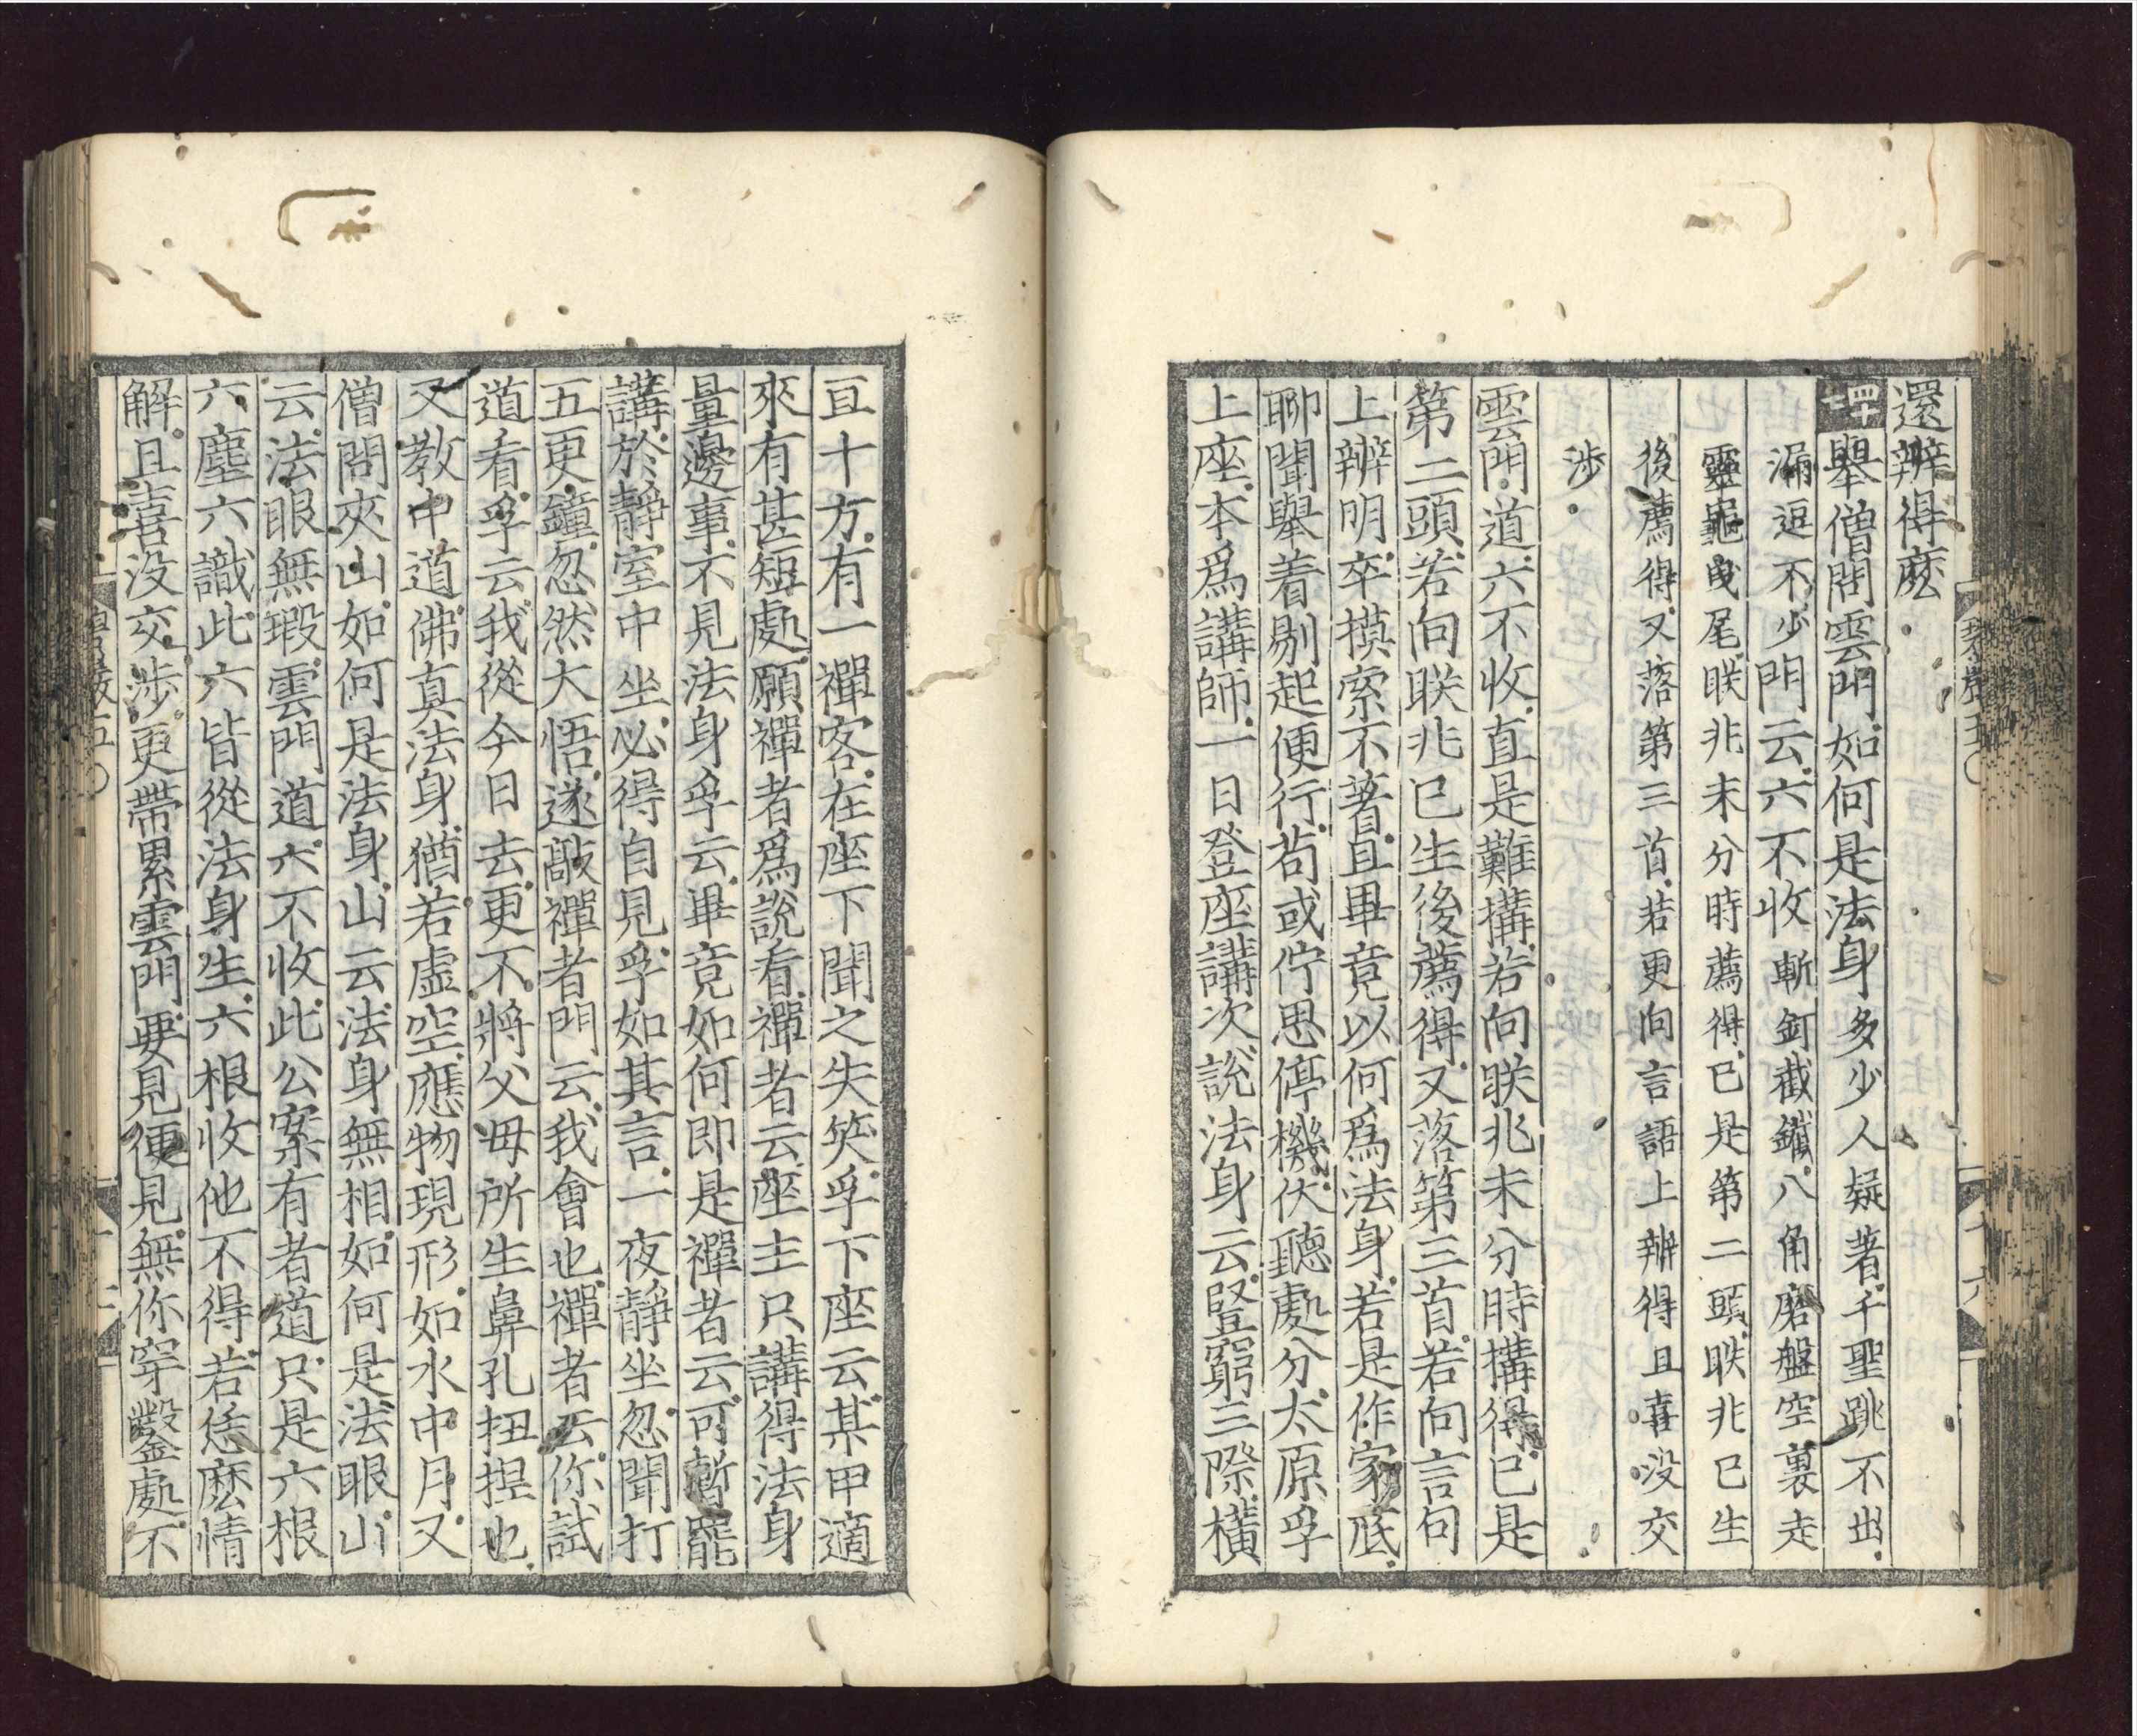 還辨得麽
四十七 舉僧問雲門如何是法身多少人疑著千聖跳不出
漏逗不少門云六不收斬釘截鐵八角磨盤空裏走
靈龜曳尾眹兆未分時薦得已是第二頭眹兆已生
後薦得又落第三首若更向言語上辨得且喜沒交
涉
雲門道六不收直是難搆若向眹兆未分時搆得已是
第二頭若向眹兆已生後薦得又落第三首若向言句
上辨明卒摸索不著且畢竟以何爲法身若是作家底
聊聞舉着剔起便行苟或佇思停機伏聽處分太原孚
上座本爲講師一日登座講次說法身云豎窮三際橫
亘十方有一禪客在座下聞之失笑孚下座云某甲適
來有甚短處願禪者爲說看禪者云座主只講得法身
量邊事不見法身孚云畢竟如何即是禪者云可暫罷
講於靜室中坐必得自見孚如其言一夜靜坐忽聞打
五更鐘忽然大悟遂敲禪者門云我會也禪者云你試
道看孚云我從今日去更不將父母所生鼻孔扭捏也
又教中道佛真法身猶若虛空應物現形如水中月又
僧問夾山如何是法身山云法身無相如何是法眼山
云法眼無瑕雲門道六不收此公案有者道只是六根
六塵六識此六皆從法身生六根收他不得若恁麽情
解且喜沒交涉更帶累雲門要見便見無你穿鑿處不